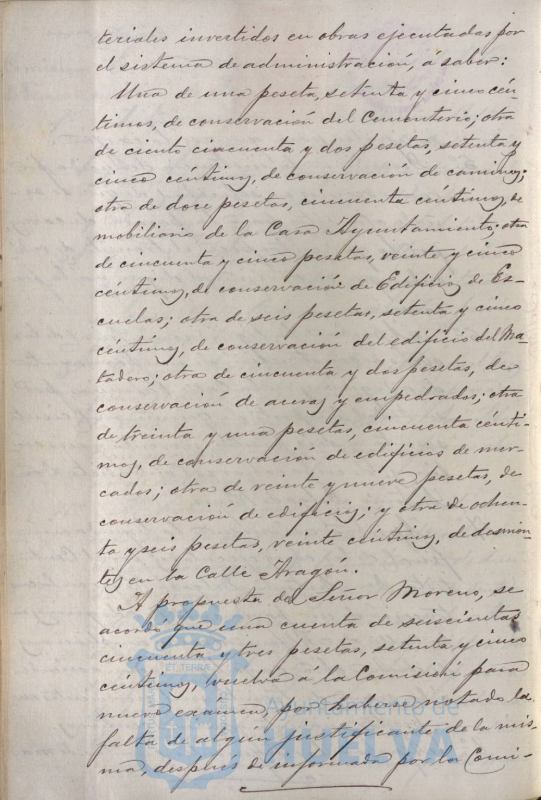 teriales invertidos en obras ejecutadas por
el sistema de administración, á saber:
Una de una peseta, setenta y cinco cén-
timos, de conservación del Cementerio; otra
de ciento cincuenta y dos pesetas, setenta y
cinco céntimos, de conservación de caminos;
otra de doce pesetas, cincuenta céntimos, de
mobiliario de la Casa Ayuntamiento; otra
de cincuenta y cinco pesetas, veinte y cinco
céntimos, de conservación de Edificios de Es-
cuelas; otra de seis pesetas, setenta y cinco
céntimos, de conservación del edificio del Ma-
tadero; otra de cincuenta y dos pesetas, de
conservación de aceras y empedrados; otra
de treinta y una pesetas, cincuenta cénti-
mos, de conservación de edificios de mer-
cados; otra de veinte y nueve pesetas, de
conservación de edificios; y otra de ochen-
ta y seis pesetas, veinte céntimos, de desmon-
tes en la Calle Aragón.
A propuesta del Señor Moreno, se
acordó que una cuenta de seiscientas
cincuenta y tres pesetas, setenta y cinco
céntimos, vuelva á la Comisión para
nuevo exámen, por haberse notado la
falta de algún justificante de la mis-
ma, despues de informada por la Comi-
Ayuntamiento de
HUELVA